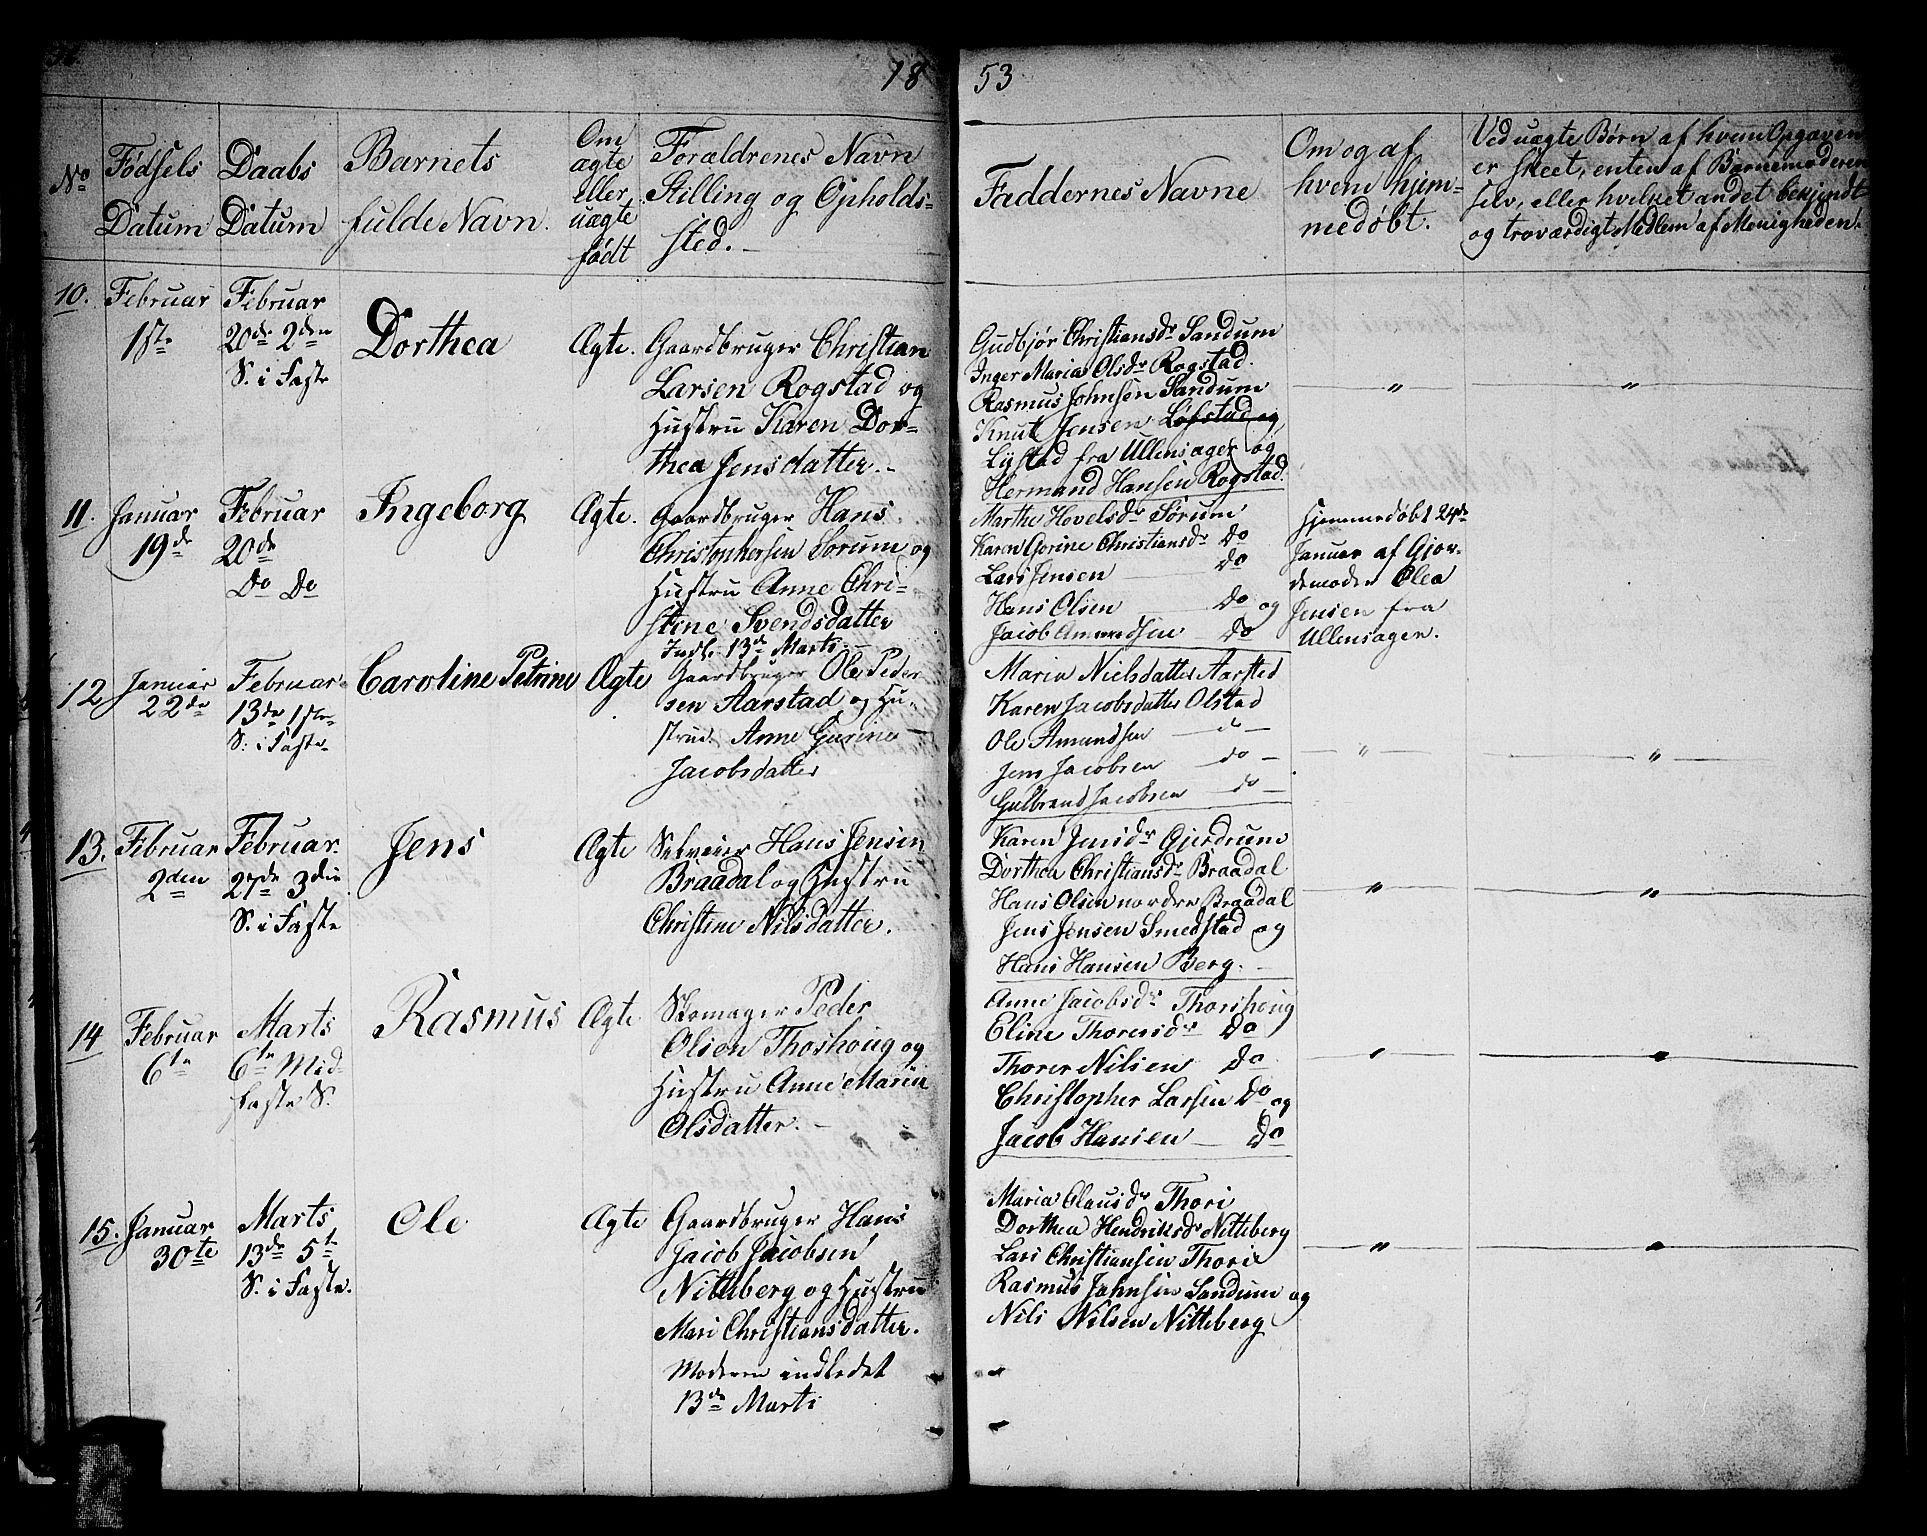 18 53
No
Fødsels
Datum
Daabs
Datum
Barnets
fulde Navn.
Om
ægte
eller
uægte
født
Forældrenes Navn
Stilling og Opholds-
sted.
Faddernes Navne
Om og af
hvem hjem-
medøbt.
Ved uægte Børn af hvem Opgaven
er skeet, enten af Barnemoderen
selv, eller hvilket andet bekjendt
og troværdigt Medlem af Menigheden.
10.
Februar
1ste
Februar
20de 2den
S. i Faste
Dorthea
Ægte.
Gaardbruger Christian
Larsen Rogstad og
Hustru Karen Dor-
thea Jensdatter.
Gudbjør Christiansdr Sandum
Inger Maria Olsdr Rogstad.
Rasmus Johnsen Sandum
Knut Jensen Løfstad og
Lystad fra Ullensager og
Hermand Hansen Rogstad.
"
"
11.
Januar
19de
Februar
20de
Do Do
Ingeborg
Ægte.
Gaardbruger Hans
Christophersen Sørum og
Hustru Anne Chri-
stine Svendsdatter
Indl. 13de Marts
Marthe Hovelsdr Sørum
Karen Gorine Christiansdr Do
Lars Jensen Do
Hans Olsen Do og
Jacob Amundsen Do
Hjemmedøbt 24de
Januar af Gjor-
demoder Olea
Jensen fra
Ullensager.
12
Januar
22de
Februar
13de 1ste
S. i Faste
Caroline Petrine
Ægte
Gaardbruger Ole Peder
sen Aarstad og Hu-
stru Anne Gurine
Jacobsdatter
Maria Nielsdatter Aarsted
Karen Jacobsdatter Olstad
Ole Amundsen do
Jens Jacobsen do
Gulbrand Jacobsen do
"
"
13.
Februar
2den
Februar
27de 3die
S. i Faste
Jens
Ægte
Selveier Hans Jensen
Braadal og Hustru
Christine Nilsdatter.
Karen Jensdr Gjerdrum
Dorthea Christiansdr Braadal
Hans Olsen nordre Braadal
Jens Jensen Smedstad og
Hans Hansen Berg.
"
"
14
Februar
6te
Marts
6te Mid-
faste S.
Rasmus
Ægte
Skomager Peder
Olsen Thoshoug og
Hustru Anne Marie
Olsdatter.
Anne Jacobsdr Thorshoug
Eline Thoresdr Do
Thorer Nilsen Do
Christopher Larsen Do og
Jacob Hansen Do
"
"
15.
Januar
30te
Marts
13de 5te
S. i Faste.
Ole
Ægte
Gaardbruger Hans
Jacob Jacobsen
Nitteberg og Hustru
Mari Christiansdatter.
Moderen indledet
13de Marts
Maria Olausdr Thori
Dorthea Hendriksdr Nitteberg
Lars Christiansen Thori
Rasmus Johnsen Sandum og
Nils Nilsen Nitteberg
"
"